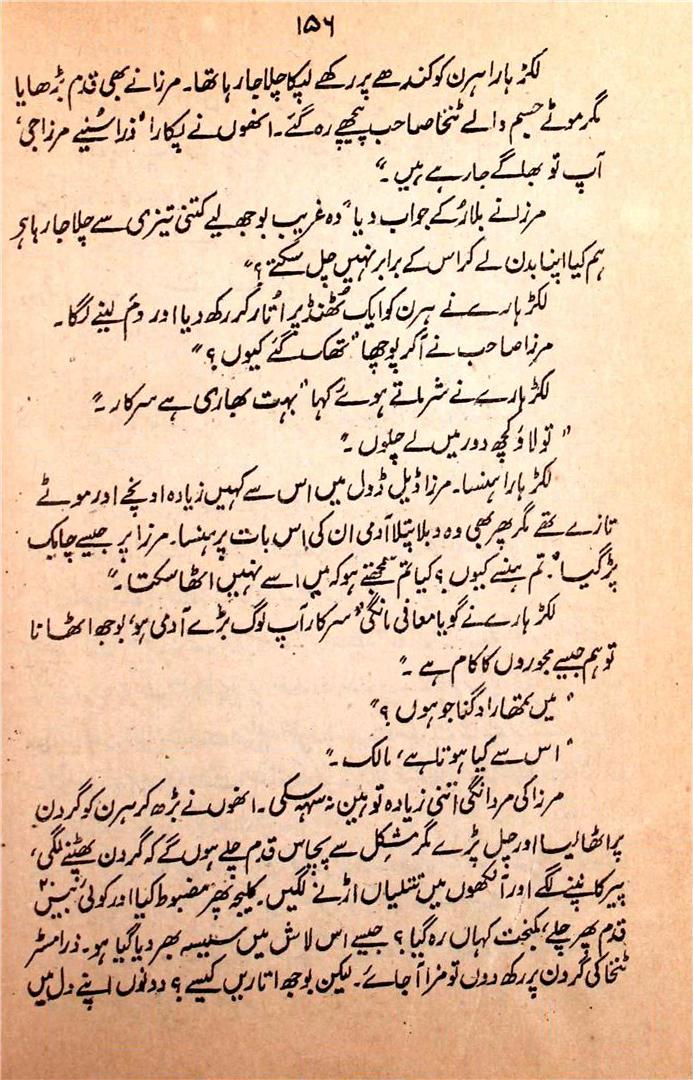 ۱۵۶
لکڑہارا ہرن کو کندھے پر رکھے لپکا چلا جا رہا تھا۔ مرزا نے بھی قدم بڑھایا
مگر موٹے جسم والے ٹنخا صاحب پیچھے رہ گئے۔ انھوں نے پکارا "ذرا سُنیے مرزا جی،
آپ تو بھاگے جا رہے ہیں۔"
مرزا نے بلا رُکے جواب دیا "وہ غریب بوجھ لیے کتنی تیزی سے چلا جا رہا ہے
ہم کیا اپنا بدن لے کر اس کے برابر نہیں چل سکتے؟"
لکڑہارے نے ہرن کو ایک ٹھنڈ پر اُتار کر رکھ دیا اور دم لینے لگا۔
مرزا صاحب نے آکر پوچھا "تھک گئے کیوں؟"
لکڑہارے نے شرماتے ہوئے کہا "بہت بھاری ہے سرکار۔"
"تو لاؤ کچھ دور میں لے چلوں۔"
لکڑہارا ہنسا۔ مرزا ڈیل ڈول میں اس سے کہیں زیادہ اونچے اور موٹے
تازے تھے مگر پھر بھی وہ دبلا پتلا آدمی ان کی اس بات پر ہنسا۔ مرزا پر جیسے چابک
پڑ گیا "تم ہنسے کیوں؟ کیا تم سمجھتے ہو کہ میں اسے نہیں اٹھا سکتا۔"
لکڑہارے نے گویا معافی مانگی "سرکار آپ لوگ بڑے آدمی ہو، بوجھ اٹھانا
تو ہم جیسے مجوروں کا کام ہے۔"
"میں تمھارا دگنا جو ہوں؟"
"اس سے کیا ہوتا ہے، مالک۔"
مرزا کی مردانگی اتنی زیادہ توہین نہ سہہ سکی۔ انھوں نے بڑھ کر ہرن کو گردن
پر اٹھا لیا اور چل پڑے مگر مشکل سے پچاس قدم چلے ہوں گے کہ گردن پھٹنے لگی،
پیر کانپنے لگے اور آنکھوں میں تتلیاں اڑنے لگیں۔ کلیجہ پھر مضبوط کیا اور کوئی بیس
قدم پھر چلے، کمبخت کہاں رہ گیا؟ جیسے اس لاش میں سیسہ بھر دیا گیا ہو۔ ذرا مسٹر
ٹنخا کی گردن پر رکھ دوں تو مزا آ جائے۔ لیکن بوجھ اتاریں کیسے؟ دونوں اپنے دل میں